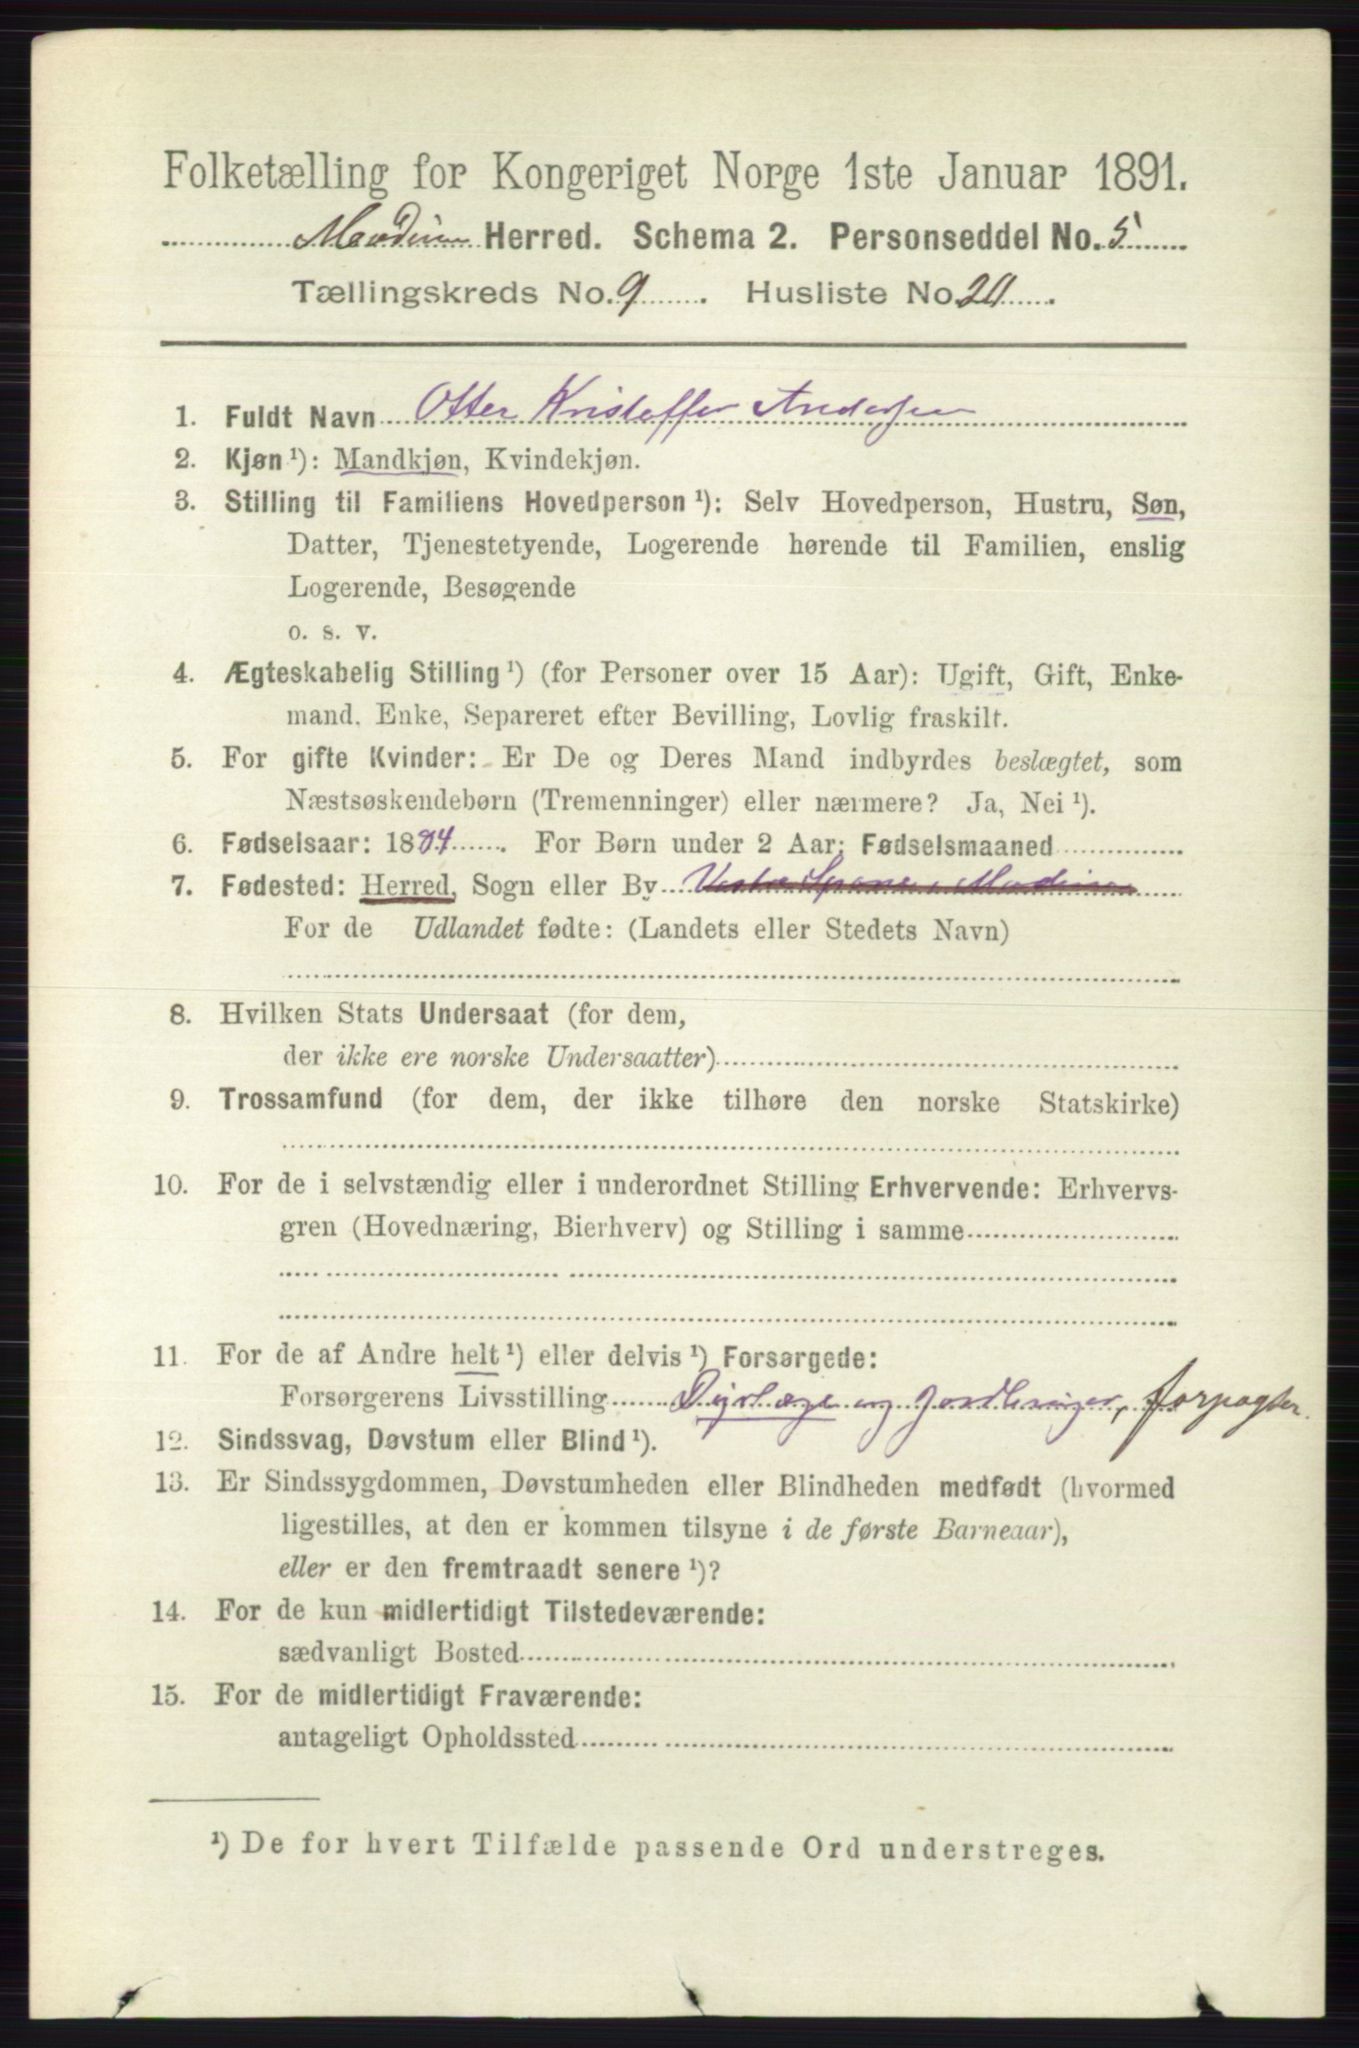 Folketælling for Kongeriget Norge 1ste Januar 1891.
Modum Herred. Schema 2. Personseddel No. 5
Tællingskreds No. 9. Husliste No. 20.
1. Fuldt Navn Otter Kristoffer Andersen
2. Kjøn ¹): Mandkjøn, Kvindekjøn.
3. Stilling til Familiens Hovedperson ¹): Selv Hovedperson, Hustru, Søn,
Datter, Tjenestetyende, Logerende hørende til Familien, enslig
Logerende, Besøgende
o. s. v.
4. Ægteskabelig Stilling ¹) (for Personer over 15 Aar): Ugift, Gift, Enke-
mand, Enke, Separeret efter Bevilling, Lovlig fraskilt.
5. For gifte Kvinder: Er De og Deres Mand indbyrdes beslægtet, som
Næstsøskendebørn (Tremenninger) eller nærmere? Ja, Nei ¹).
6. Fødselsaar: 1884. For Børn under 2 Aar: Fødselsmaaned
7. Fødested: Herred, Sogn eller By Vestre Spone i Modum
For de Udlandet fødte: (Landets eller Stedets Navn)
8. Hvilken Stats Undersaat (for dem,
der ikke ere norske Undersaatter)
9. Trossamfund (for dem, der ikke tilhøre den norske Statskirke)
10. For de i selvstændig eller i underordnet Stilling Erhvervende: Erhvervs-
gren (Hovednæring, Bierhverv) og Stilling i samme
11. For de af Andre helt ¹) eller delvis ¹) Forsørgede:
Forsørgerens Livsstilling Dyrlæge og Jordbruger, forpagter.
12. Sindssvag, Døvstum eller Blind ¹).
13. Er Sindssygdommen, Døvstumheden eller Blindheden medfødt (hvormed
ligestilles, at den er kommen tilsyne i de første Barneaar),
eller er den fremtraadt senere ¹)?
14. For de kun midlertidigt Tilstedeværende:
sædvanligt Bosted
15. For de midlertidigt Fraværende:
antageligt Opholdssted
¹) De for hvert Tilfælde passende Ord understreges.